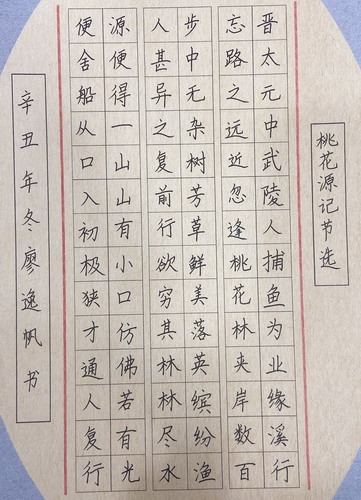 桃花源记节选
晋太元中武陵人捕鱼为业缘溪行
忘路之远近忽逢桃花林夹岸数百
步中无杂树芳草鲜美落英缤纷渔
人甚异之复前行欲穷其林林尽水
源便得一山山有小口仿佛若有光
便舍船从口入初极狭才通人复行
辛丑年冬廖逸帆书